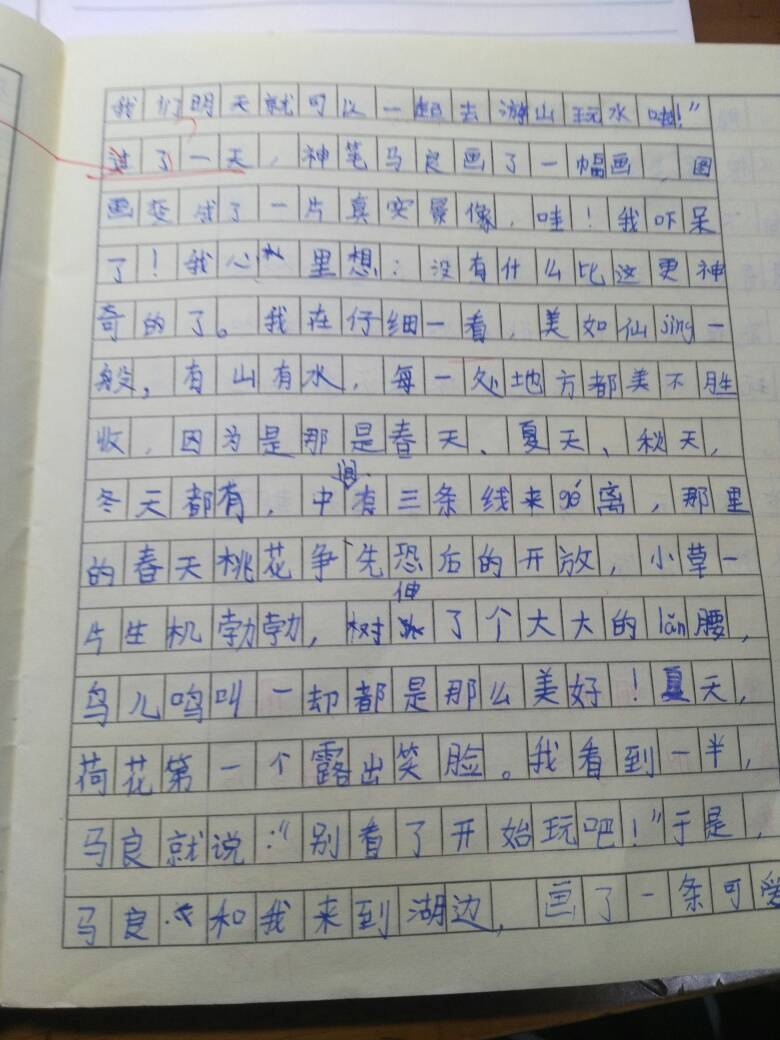 我们明天就可以一起去游山玩水啦！”
过了一天，神笔马良画了一幅画，图
画变成了一片真实景像，哇！我吓呆
了！我心里想：没有什么比这更神
奇的了。我在仔细一看，美如仙jing一
般，有山有水，每一处地方都美不胜
收，因为是那是春天、夏天、秋天，
冬天都有，中间有三条线来gé离，那里
的春天桃花争先恐后的开放，小草一
片生机勃勃，树伸了个大大的lǎn腰，
鸟儿鸣叫一却都是那么美好！夏天，
荷花第一个露出笑脸。我看到一半，
马良就说：“别看了开始玩吧！”于是，
马良和我来到湖边，画了一条可爱